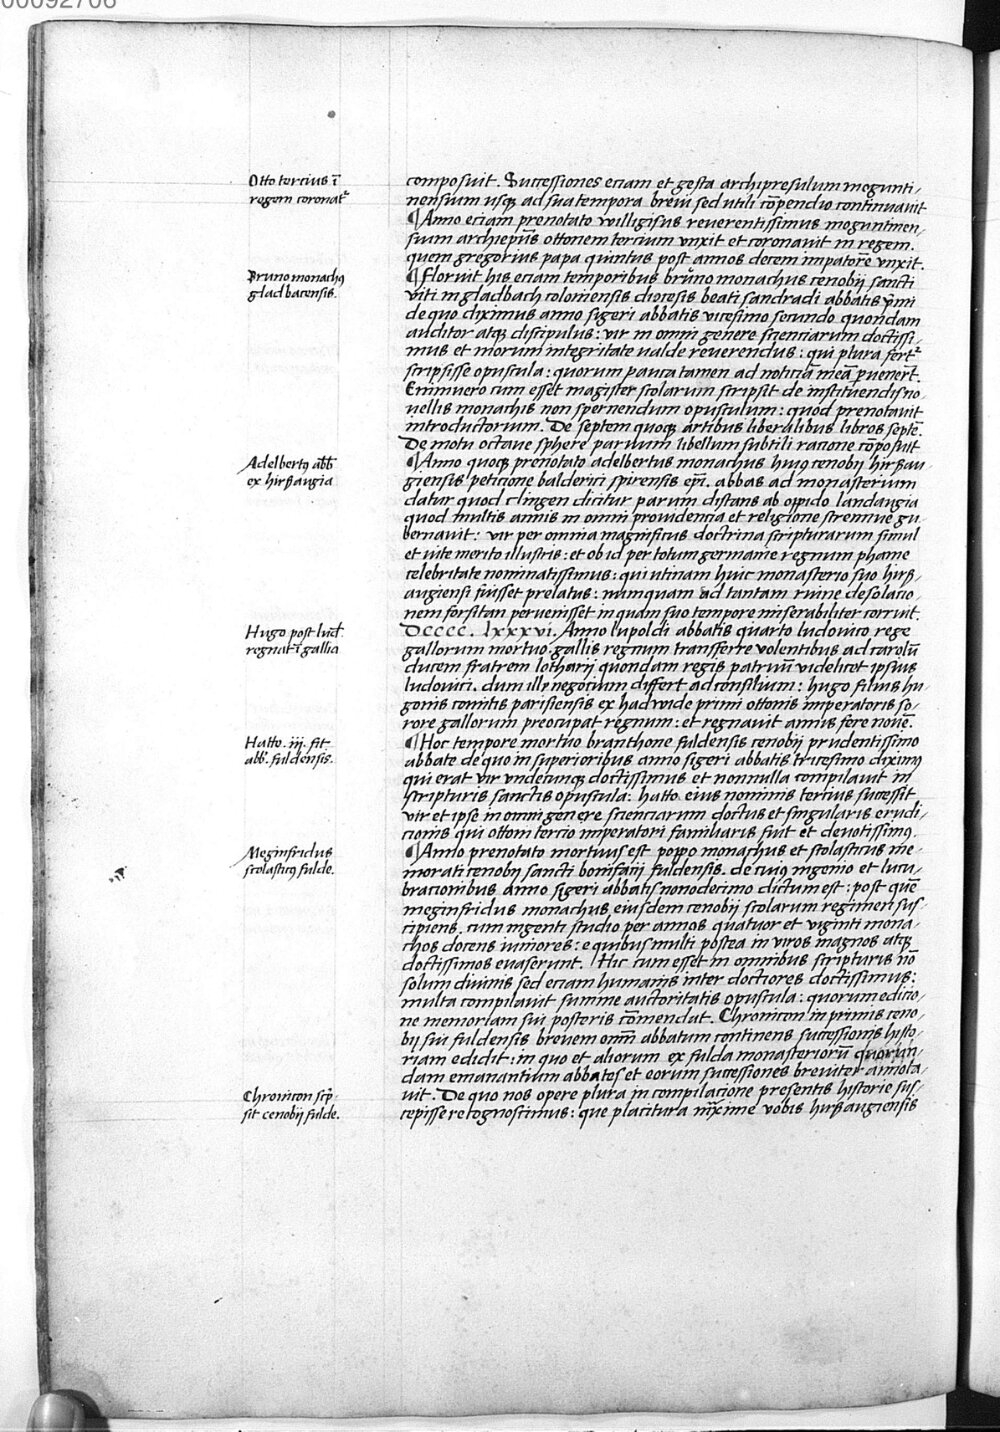 00092706
Otto tercius ī
regem coronatr
Bruno monachꝰ
gladbacensis.
Adelbertꝰ abb̄
ex hirßaugia
Hugo post lud.
regnat ī gallia
Hatto .iij. fit
abb. fuldensis.
Meginfridus
scolasticꝰ fulde.
Chronicon scrip̄
sit cenobij fulde.
composuit. Successiones eciam et gesta archipresulum mogunti-
nensium usqꝫ ad sua tempora breui sed utili cōpendio continuauit
¶ Anno eciam prenotato willigisus reuerentissimus moguntinen-
sium archiepūs ottonem tercium vnxit et coronauit in regem.
quem gregorius papa quintus post annos decem impatorē vnxit.
¶ Floruit his eciam temporibus bruno monachus cenobij sancti
viti in gladbach coloniensis diocesis beati sandradi abbatis p̄mi
de quo diximus anno sigeri abbatis vicesimo secundo quondam
auditor atqꝫ discipulus: vir in omni genere scienciarum doctissi-
mus et morum integritate valde reuerendus: qui plura fertr
scripsisse opuscula: quorum pauca tamen ad noticiā meā puenert̄.
Enimuero cum esset magister scolarum scripsit de instituendis no-
uellis monachis non spernendum opusculum: quod prenotauit
introductorium. De septem quoqꝫ artibus liberalibus libros septē.
De motu octaue sphere paruum libellum subtili racione cōposuit
¶ Anno quoqꝫ prenotato adelbertus monachus huiꝰ cenobij hirßau-
giensis peticione balderici spirensis epī. abbas ad monasterium
datur quod clingen dicitur parum distans ab oppido landaugia
quod multis annis in omni prouidencia et religione strennue gu-
bernauit: vir per omnia magnificus doctrina scripturarum simul
et vite merito illustris: et ob id per totum germanie regnum phame
celebritate nominatissimus: qui utinam huic monasterio suo hirß-
augiensi fuisset prelatus: nunquam ad tantam ruine desolacio-
nem forsitan peruenisset in quam suo tempore miserabiliter corruit.
Dcccc. lxxxvi. Anno lupoldi abbatis quarto ludouico rege
gallorum mortuo gallis regnum transferre volentibus ad carolū
ducem fratrem lotharij quondam regis patruū videlicet ipsius
ludouici. dum ille negocium differt ad consilium: hugo filius hu-
gonis comitis parisiensis ex hadwide primi ottonis imperatoris so-
rore gallorum preocupat regnum: et regnauit annis fere nouē.
¶ Hoc tempore mortuo branthone fuldensis cenobij prudentissimo
abbate de quo in superioribus anno sigeri abbatis tricesimo diximꝰ
qui erat vir vndecunqꝫ doctissimus et nonnulla compilauit in
scripturis sanctis opuscula: hatto eius nominis tercius successit
vir et ipse in omni genere scienciarum doctus et singularis erudi-
cionis qui ottoni tercio imperatori familiaris fuit et deuotissimꝰ.
¶ Anno prenotato mortuus est poppo monachus et scolasticus me-
morati cenobij sancti bonifacij fuldensis. de cuiꝰ ingenio et lucu-
bracionibus anno sigeri abbatis nonodecimo dictum est: post quē
meginfridus monachus eiusdem cenobij scolarum regimen sus-
cipiens. cum ingenti studio per annos quatuor et viginti mona-
chos docens iuniores: e quibus multi postea in viros magnos atqꝫ
doctissimos euaserunt. Hic cum esset in omnibus scripturis nō
solum diuinis sed eciam humanis inter doctiores doctissimus:
multa compilauit summe auctoritatis opuscula: quorum edicio-
ne memoriam sui posteris cōmendat. Chronicon in primis ceno-
bij sui fuldensis breuem omniū abbatum continens successionis histo-
riam edidit: in quo et aliorum ex fulda monasteriorū quorun-
dam emanantium abbates et eorum successiones breuiter annota-
uit. De quo nos opere plura in compilacione presentis historie sus-
cepisse recognoscimus: que placitura maxime vobis hirßaugiensis